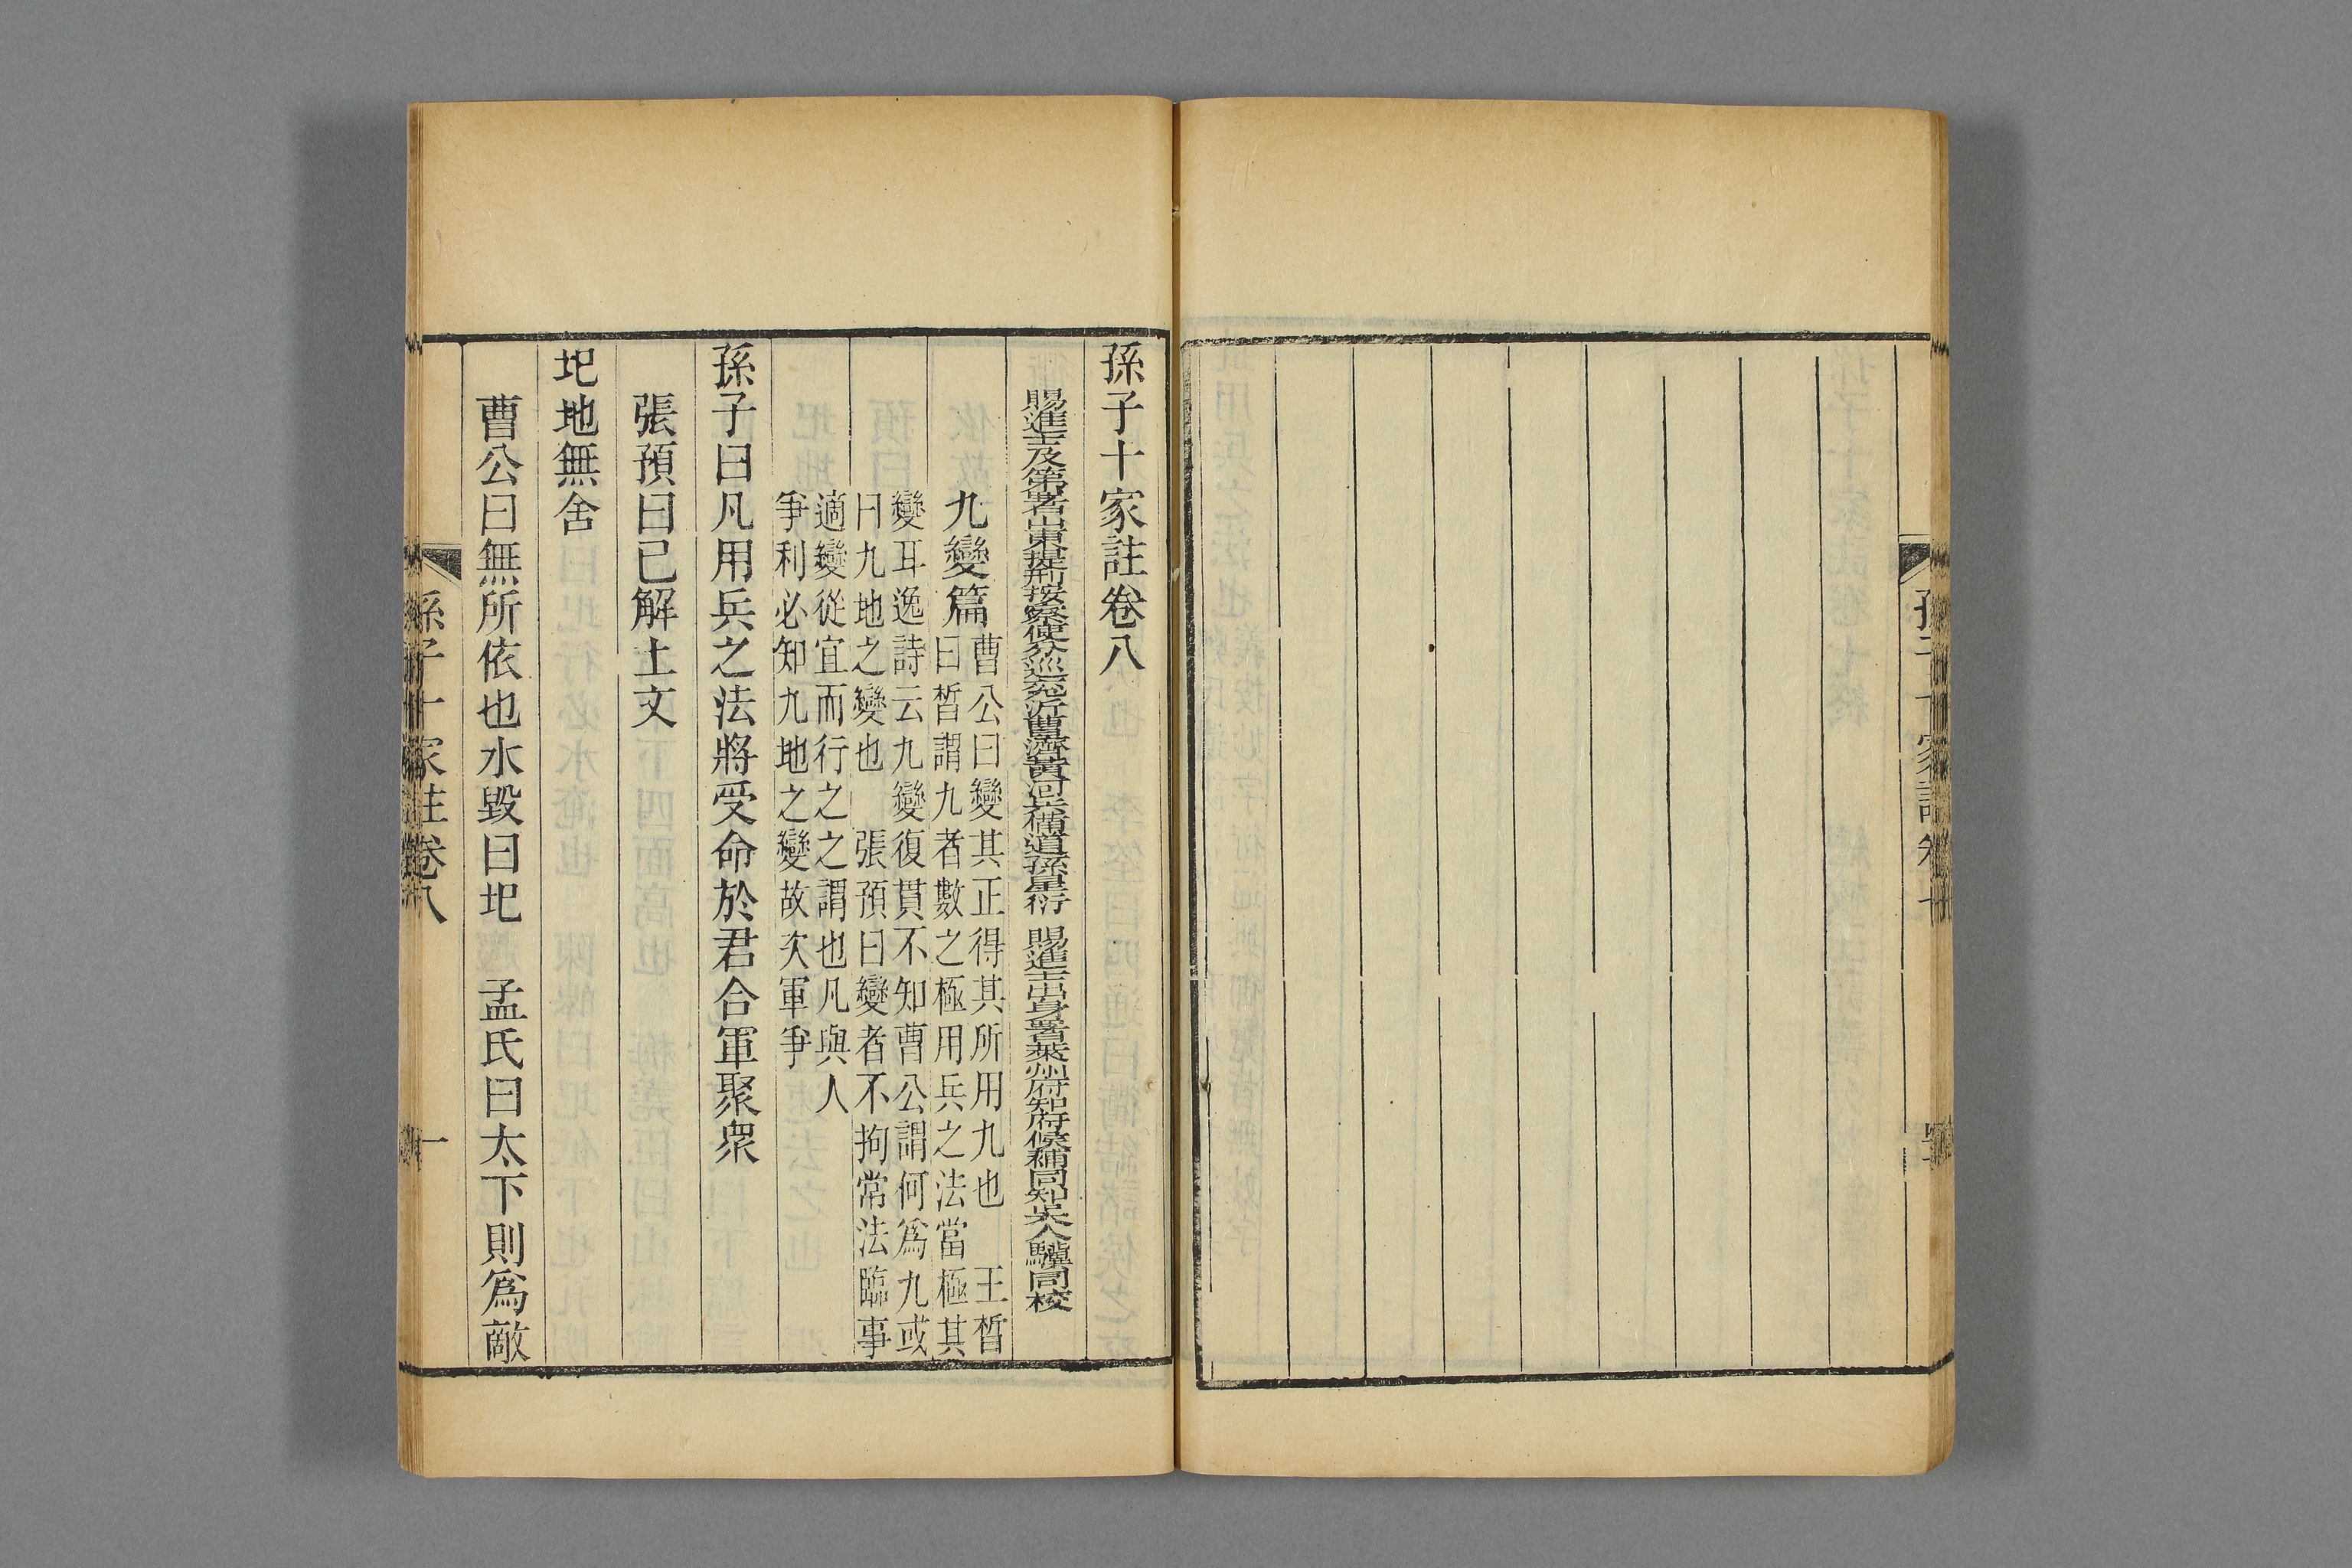 孫子十家註卷八
賜進士及第署山東提刑按察使分巡兗沂曹濟黃河兵備道孫星衍　賜進士出身署萊州府知府候補同知吳人驥同校
九變篇
曹公曰變其正得其所用九也　王晳
曰晳謂九者數之極用兵之法當極其
變耳逸詩云九變復貫不知曹公謂何爲九或
曰九地之變也　張預曰變者不拘常法臨事
適變從宜而行之之謂也凡與人
爭利必知九地之變故次軍爭
孫子曰凡用兵之法將受命於君合軍聚衆
張預曰已解上文
圮地無舍
曹公曰無所依也水毀曰圮　孟氏曰太下則爲敵
孫子十家註卷八
一